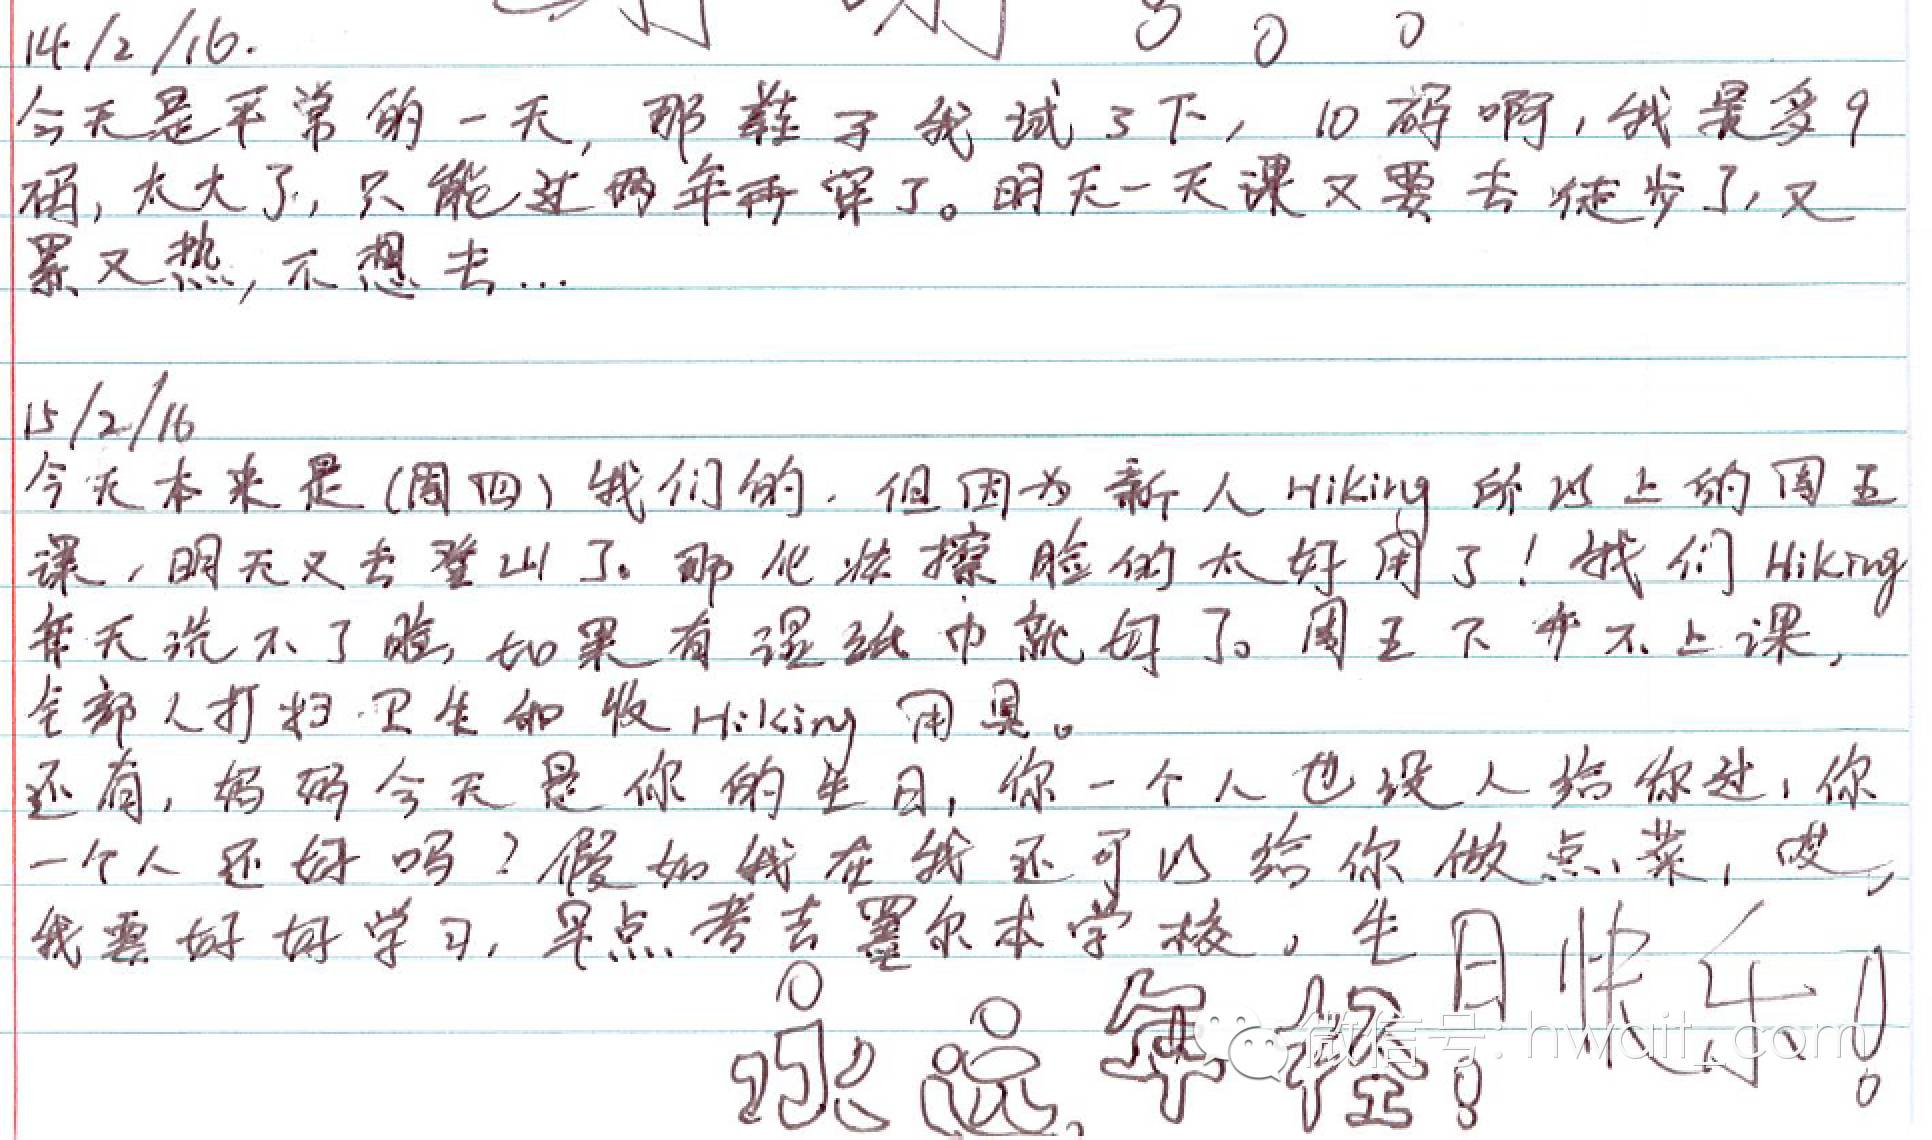 14/2/16.
今天是平常的一天，那鞋子我试了下，10码啊，我最多9
码，太大了，只能过两年再穿了。明天一天课又要去徒步了，又
累又热，不想去...
15/2/16
今天本来是(周四)我们的. 但因为新人Hiking所以上的周五
课，明天又去登山了。那化妆擦脸的太好用了！我们Hiking
每天洗不了脸，如果有湿纸巾就好了。周五下午不上课，
全部人打扫卫生和收Hiking用具。
还有，妈妈今天是你的生日，你一个人也没人给你过，你
一个人还好吗？假如我在我还可以给你做点菜，哎，
我要好好学习，早点考去墨尔本学校。生日快乐！
永远年轻！
微信号: hwdit_com